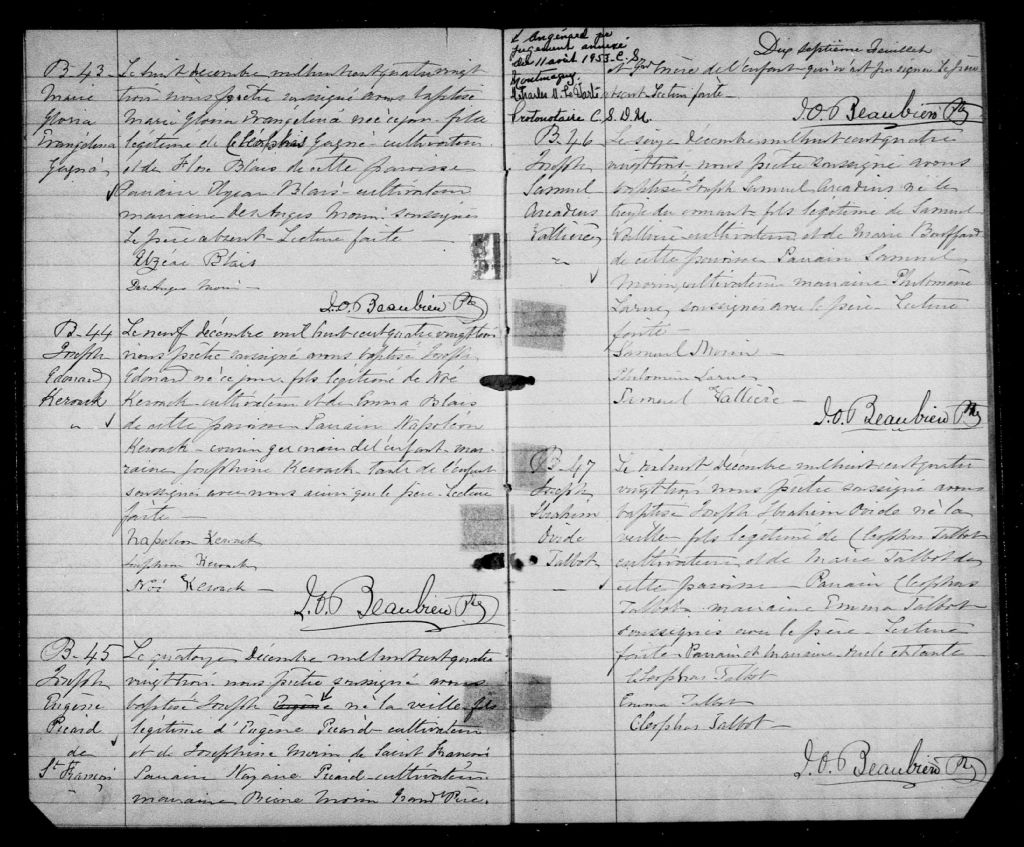 B-43
Marie
Gloria
Evangélina
Gagné
Le huit décembre mil huit cent quatre vingt
trois nous prêtre soussigné avons baptisé
Marie Gloria Evangélina née ce jour fille
légitime de Cléophas Gagné cultivateur
et de Flore Blais de cette paroisse
Parrain Blais cultivateur
marraine Des Anges Morin soussignés
Le père absent - Lecture faite
Blais
Des Anges Morin
J.O. Beaubien Ptre
B-44
Joseph
Edouard
Kerouack
"
Le neuf décembre mil huit cent quatre vingt trois
nous prêtre soussigné avons baptisé Joseph
Edouard né ce jour fils légitime de Noé
Kerouack cultivateur et de Emma Blais
de cette paroisse Parrain Napoléon
Kerouack - cousin germain de l'enfant mar-
raine Joséphine Kerouack - tante de l'enfant
soussignés avec nous ainsi que le père - Lecture
faite
Napoléon Kerouack
Joséphine Kerouack
Noé Kerouack
J.O. Beaubien Ptre
B-45
Joseph
Eugène
Picard
de
St François
"
Le quatorze Décembre mil huit cent quatre
vingt trois nous prêtre soussigné avons
baptisé Joseph né la veille fils
légitime d'Eugène Picard cultivateur
et de Joséphine Morin de Saint François
Parrain Nazaire Picard - cultivateur
marraine Morin Grand Père
Dix septième Feuillet
X Eugène d per
jugement annexé
du 11 août 1953 - C. S.
Montmagny
Charles
Protonotaire C. S. D. M.
et Gnd mère de l'enfant - qui n'ont pas signé Le père
absent - Lecture faite -
J.O. Beaubien Ptre
B-46
Joseph
Samuel
Arcadius
Vallière
"
Le seize Décembre mil huit cent quatre
vingt trois - nous prêtre soussigné avons
baptisé Joseph Samuel Arcadius né le
treize du courant - fils légitime de Samuel
Vallière cultivateur et de Marie Bouffard
de cette paroisse Parrain Samuel
Morin cultivateur marraine Philomène
soussignés avec le père - Lecture
faite
Samuel Morin
Philomène
Samuel Vallière
J.O. Beaubien Ptre
B-47
Joseph
Ibrahim
Ovide
Talbot
Le dix huit décembre mil huit cent quatre
vingt trois nous prêtre soussigné avons
baptisé Joseph Ibrahim Ovide né la
veille fils légitime de Cleophas Talbot
cultivateur et de Marie Talbot de
cette paroisse - Parrain Cleophas
Talbot - marraine Emma Talbot
soussignés avec le père - Lecture
faite - Parrain et marraine oncle et tante
Cleophas Talbot
Emma Talbot
Cleophas Talbot
J.O. Beaubien Ptre